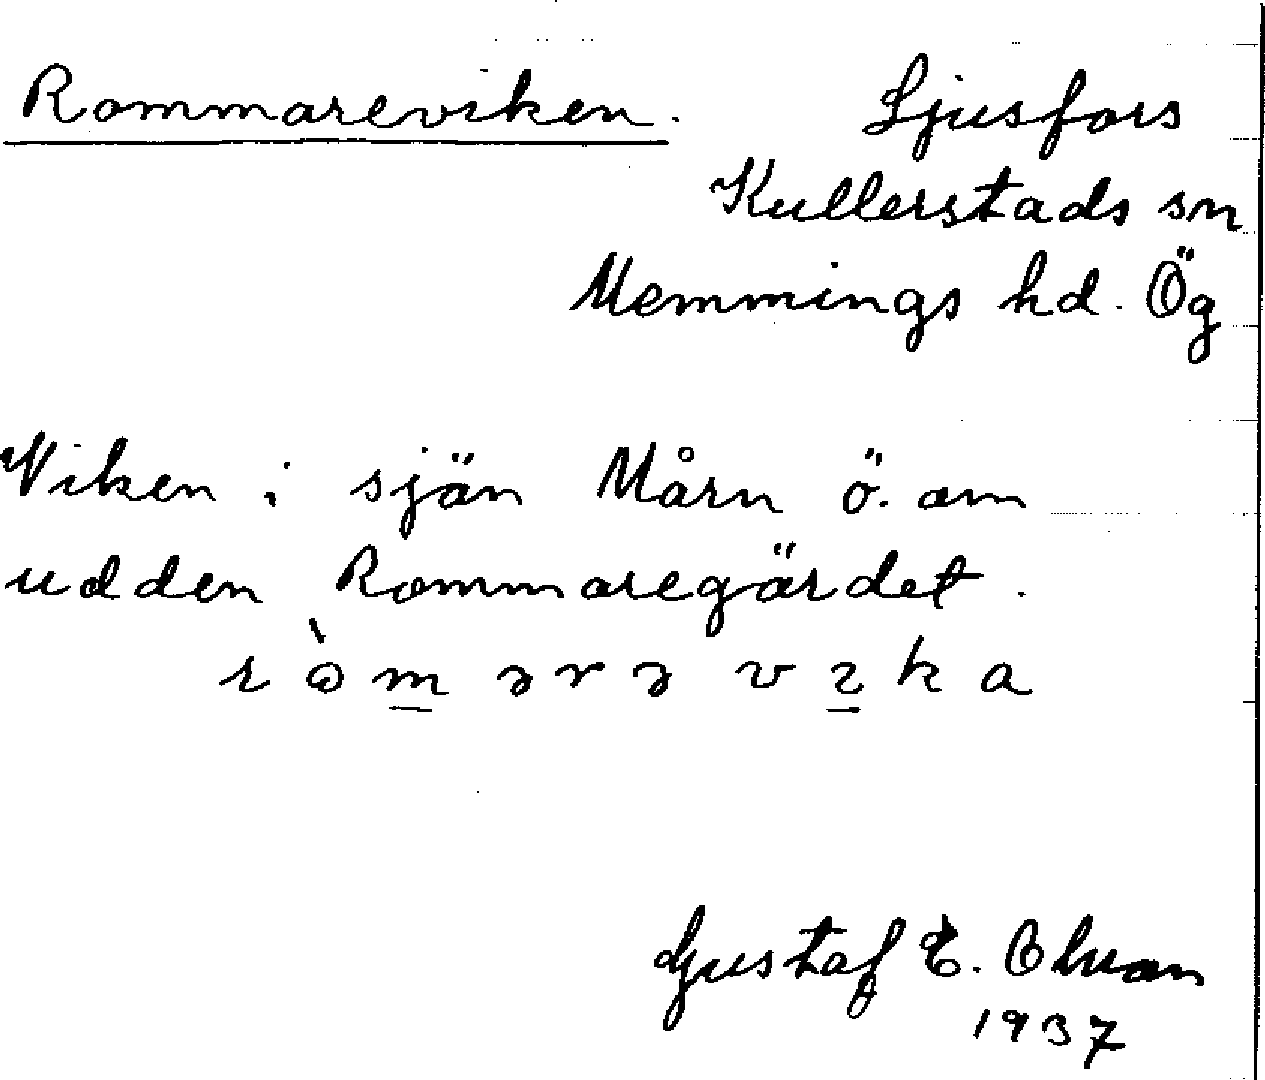 Rommareviken.
Ljusfors
Kullerstads sn
Memmings hd. Ög
Viken i sjön Mårn ö. om
udden Rommaregärdet.
Gustaf E.
1937